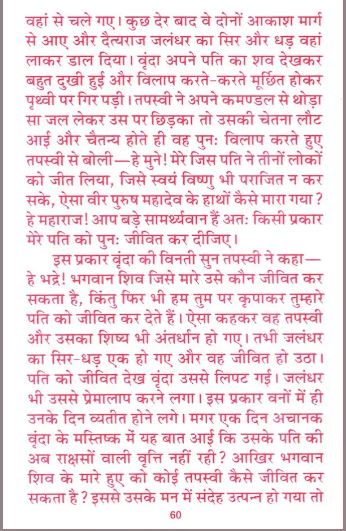 वहां से चले गए। कुछ देर बाद वे दोनों आकाश मार्ग
से आए और दैत्यराज जलंधर का सिर और धड़ वहां
लाकर डाल दिया। वृंदा अपने पति का शव देखकर
बहुत दुखी हुई और विलाप करते-करते मूर्छित होकर
पृथ्वी पर गिर पड़ी। तपस्वी ने अपने कमण्डल से थोड़ा
सा जल लेकर उस पर छिड़का तो उसकी चेतना लौट
आई और चैतन्य होते ही वह पुनः विलाप करते हुए
तपस्वी से बोली—हे मुने! मेरे जिस पति ने तीनों लोकों
को जीत लिया, जिसे स्वयं विष्णु भी पराजित न कर
सके, ऐसा वीर पुरुष महादेव के हाथों कैसे मारा गया?
हे महाराज! आप बड़े सामर्थ्यवान हैं अतः किसी प्रकार
मेरे पति को पुनः जीवित कर दीजिए।
इस प्रकार वृंदा की विनती सुन तपस्वी ने कहा—
हे भद्रे! भगवान शिव जिसे मारे उसे कौन जीवित कर
सकता है, किंतु फिर भी हम तुम पर कृपाकर तुम्हारे
पति को जीवित कर देते हैं। ऐसा कहकर वह तपस्वी
और उसका शिष्य भी अंतर्धान हो गए। तभी जलंधर
का सिर-धड़ एक हो गए और वह जीवित हो उठा।
पति को जीवित देख वृंदा उससे लिपट गई। जलंधर
भी उससे प्रेमालाप करने लगा। इस प्रकार वनों में ही
उनके दिन व्यतीत होने लगे। मगर एक दिन अचानक
वृंदा के मस्तिष्क में यह बात आई कि उसके पति की
अब राक्षसों वाली वृत्ति नहीं रही? आखिर भगवान
शिव के मारे हुए को कोई तपस्वी कैसे जीवित कर
सकता है? इससे उसके मन में संदेह उत्पन्न हो गया तो
60